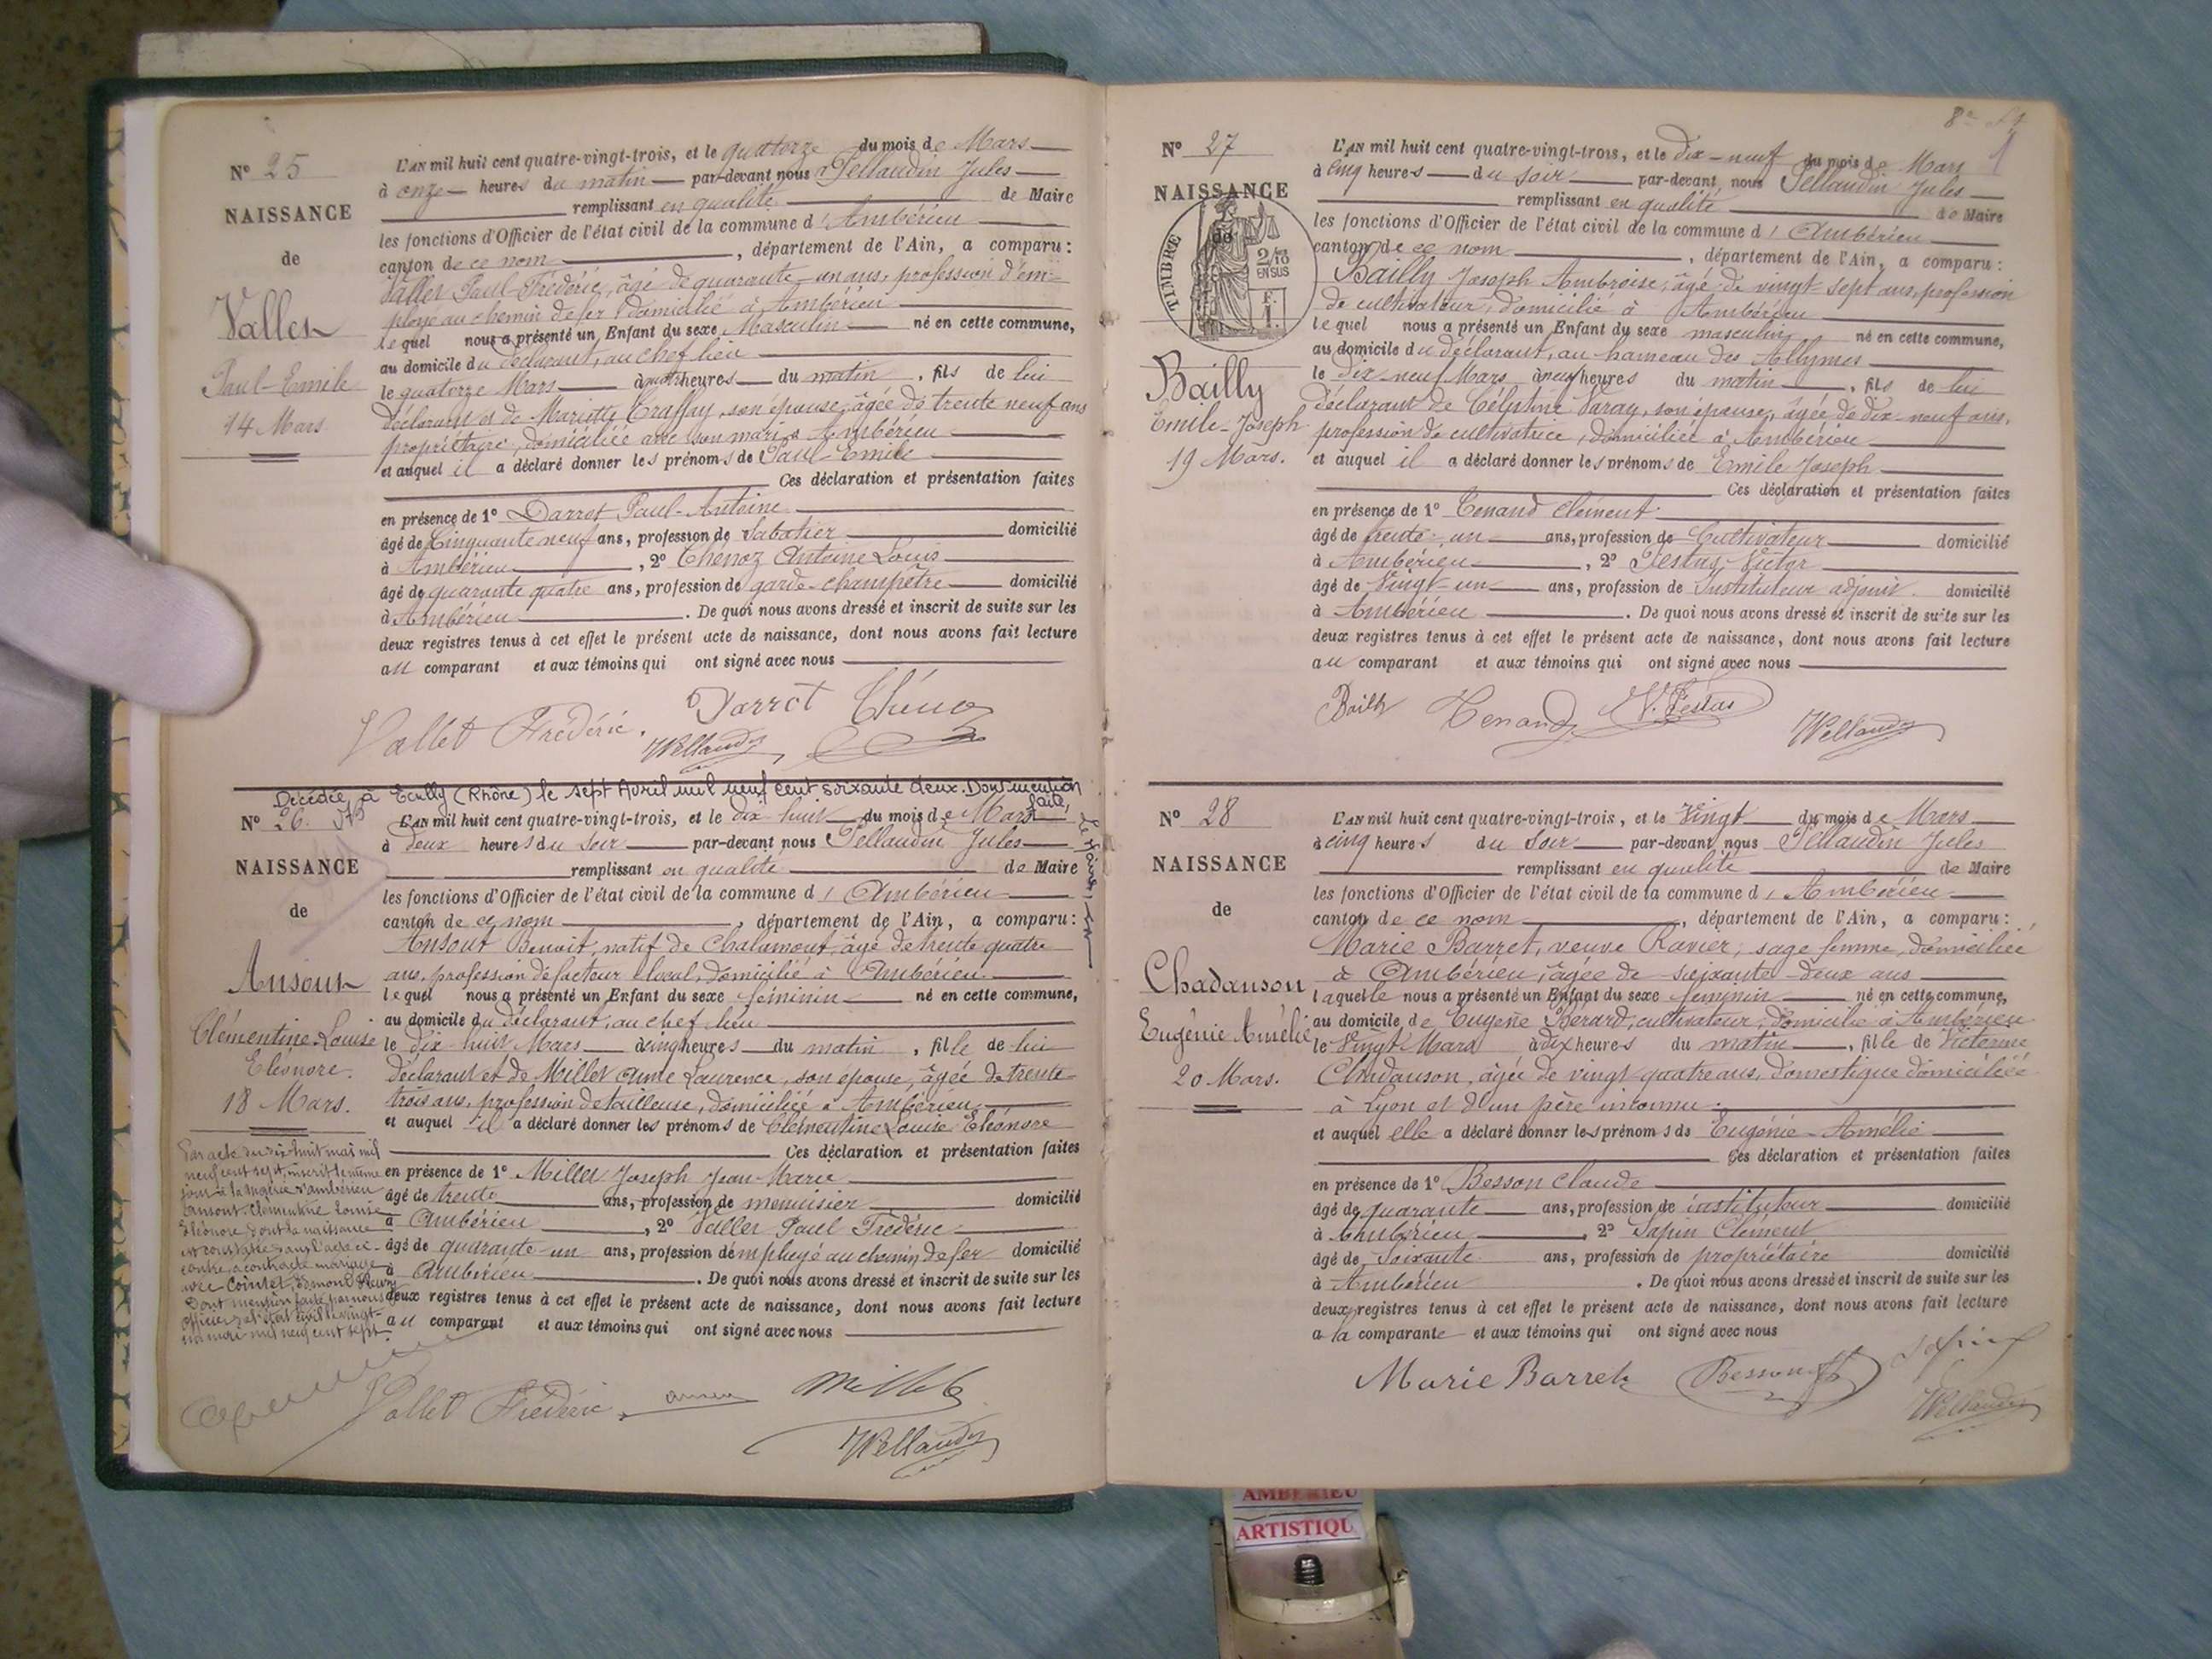 N° 25
NAISSANCE
de
Vallet
Paul-Emile
14 Mars
L'AN mil huit cent quatre-vingt-trois, et le quatorze du mois de Mars
à onze heures du matin par-devant nous Pellaudin Jules
remplissant en qualité de Maire
les fonctions d'Officier de l'état civil de la commune d'Ambérieu
canton de ce nom, département de l'Ain, a comparu :
Vallet Paul-Frédéric, âgé de quarante-un ans, profession d'em-
ployé au chemin de fer domicilié à Ambérieu
lequel nous a présenté un Enfant du sexe Masculin né en cette commune,
au domicile du déclarant, au chef lieu
le quatorze Mars à heures du matin, fils de lui
déclarant et de Mariette son épouse, âgée de trente neuf ans
propriétaire, domiciliée avec son mari à Ambérieu
et auquel il a déclaré donner les prénoms de Paul-Emile
Ces déclaration et présentation faites
en présence de 1° Darrot Paul-Antoine
âgé de Cinquante neuf ans, profession de Sabatier domicilié
à Ambérieu, 2° Chénoz Antoine Louis
âgé de quarante quatre ans, profession de garde-champêtre domicilié
à Ambérieu. De quoi nous avons dressé et inscrit de suite sur les
deux registres tenus à cet effet le présent acte de naissance, dont nous avons fait lecture
au comparant et aux témoins qui ont signé avec nous
Vallet Frédéric. Darrot Chénoz
JPellaudin
Décédée à Ecully (Rhône) le sept Avril mil neuf cent soixante deux. Dont mention
faite,
N° 26
NAISSANCE
de
Ansout
Clémentine-Louise
Eléonore.
18 Mars.
L'AN mil huit cent quatre-vingt-trois, et le dix-huit du mois de Mars
à deux heures du soir par-devant nous Pellaudin Jules
remplissant en qualité de Maire
les fonctions d'Officier de l'état civil de la commune d'Ambérieu
canton de ce nom, département de l'Ain, a comparu :
Ansout Benoit, natif de Chalamont, âgé de trente quatre
ans, profession de facteur local, domicilié à Ambérieu
lequel nous a présenté un Enfant du sexe féminin né en cette commune,
au domicile du déclarant, au chef lieu
le dix huit Mars à cinq heures du matin, fille de lui
déclarant et de Millet Anne Laurence, son épouse, âgée de trente-
trois ans, profession de tailleuse, domiciliée à Ambérieu
et auquel il a déclaré donner les prénoms de Clémentine Louise Eléonore
Ces déclaration et présentation faites
en présence de 1° Millet Joseph Jean-Marie
âgé de trente ans, profession de menuisier domicilié
à Ambérieu, 2° Vallet Paul Frédéric
âgé de quarante-un ans, profession d'employé au chemin de fer domicilié
à Ambérieu. De quoi nous avons dressé et inscrit de suite sur les
deux registres tenus à cet effet le présent acte de naissance, dont nous avons fait lecture
au comparant et aux témoins qui ont signé avec nous
Par acte du dix-huit mai mil
neuf cent sept, inscrit le même
jour à la mairie d'Ambérieu
Lansout Clémentine Louise
Eléonore dont la naissance
est constatée dans l'acte ci-
contre, a contracté mariage
avec Cointet, Edmond Fleury
Dont mention faite par nous
officier de l'état civil le vingt-
un mai mil neuf cent sept.
Vallet Frédéric. Millet
JPellaudin
N° 27
NAISSANCE
de
TIMBRE
2/10
EN SUS
F.
1.
Bailly
Emile-Joseph
19 Mars.
L'AN mil huit cent quatre-vingt-trois, et le dix-neuf du mois de Mars
à cinq heures du soir par-devant nous Pellaudin Jules
remplissant en qualité de Maire
les fonctions d'Officier de l'état civil de la commune d'Ambérieu
canton de ce nom, département de l'Ain, a comparu :
Bailly Joseph Ambroise, âgé de vingt-sept ans, profession
de cultivateur, domicilié à Ambérieu
lequel nous a présenté un Enfant du sexe masculin né en cette commune,
au domicile du déclarant, au hameau des Allymes
le dix-neuf Mars à neuf heures du matin, fils de lui
déclarant de Célestine Varay, son épouse, âgée de dix-neuf ans,
profession de cultivatrice, domiciliée à Ambérieu
et auquel il a déclaré donner les prénoms de Emile Joseph
Ces déclaration et présentation faites
en présence de 1° Tenand Clément
âgé de trente-un ans, profession de Cultivateur domicilié
à Ambérieu, 2° Festas Victor
âgé de Vingt-un ans, profession de Instituteur adjoint domicilié
à Ambérieu. De quoi nous avons dressé et inscrit de suite sur les
deux registres tenus à cet effet le présent acte de naissance, dont nous avons fait lecture
au comparant et aux témoins qui ont signé avec nous
Bailly Tenand V. Festas
JPellaudin
N° 28
NAISSANCE
de
Chadanson
Eugénie Amélie
20 Mars.
L'AN mil huit cent quatre-vingt-trois, et le Vingt du mois de Mars
à cinq heures du soir par-devant nous Pellaudin Jules
remplissant en qualité de Maire
les fonctions d'Officier de l'état civil de la commune d'Ambérieu
canton de ce nom, département de l'Ain, a comparu :
Marie Barret, veuve Ravier, sage femme, domiciliée
à Ambérieu, âgée de soixante-deux ans
laquelle nous a présenté un Enfant du sexe féminin né en cette commune,
au domicile de Eugène Berard, cultivateur, domicilié à Ambérieu
le Vingt Mars à dix heures du matin, fille de Victorine
Chadanson, âgée de vingt-quatre ans, domestique domiciliée
à Lyon et d'un père inconnu
et auquel elle a déclaré donner les prénoms de Eugénie-Amélie
Ces déclaration et présentation faites
en présence de 1° Besson Claude
âgé de quarante ans, profession de instituteur domicilié
à Ambérieu, 2° Sapin Clément
âgé de Soixante ans, profession de propriétaire domicilié
à Ambérieu. De quoi nous avons dressé et inscrit de suite sur les
deux registres tenus à cet effet le présent acte de naissance, dont nous avons fait lecture
a la comparante et aux témoins qui ont signé avec nous
Marie Barret Besson Sapin
JPellaudin
AMBERIEU
ARTISTIQU